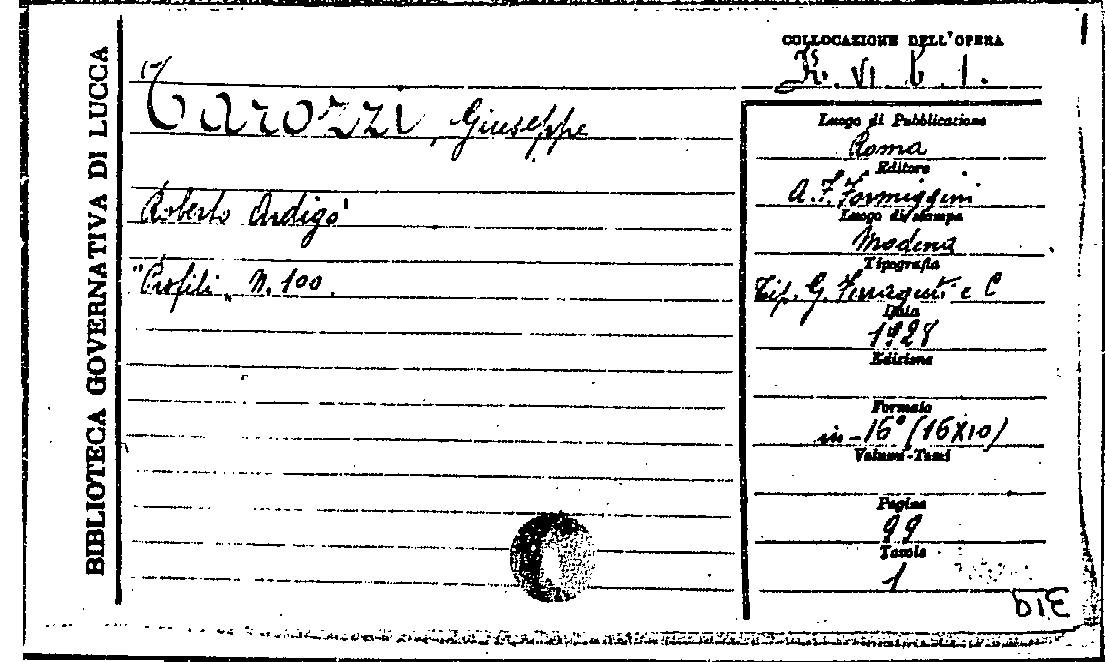 BIBLIOTECA GOVERNATIVA DI LUCCA
COLLOCAZIONE DELL'OPERA
VI. b. 1.
Tarozzi, Giuseppe
Roberto Ardigo'
"Profili" N. 100.
Luogo di Pubblicazione
Roma
Editore
A. F. Formiggini
Luogo di stampa
Modena
Tipografia
Tip. G. Ferraguti e C
Data
1928
Edizione
Formato
in-16° (16X10)
Volumi-Tomi
Pagine
99
Tavole
1